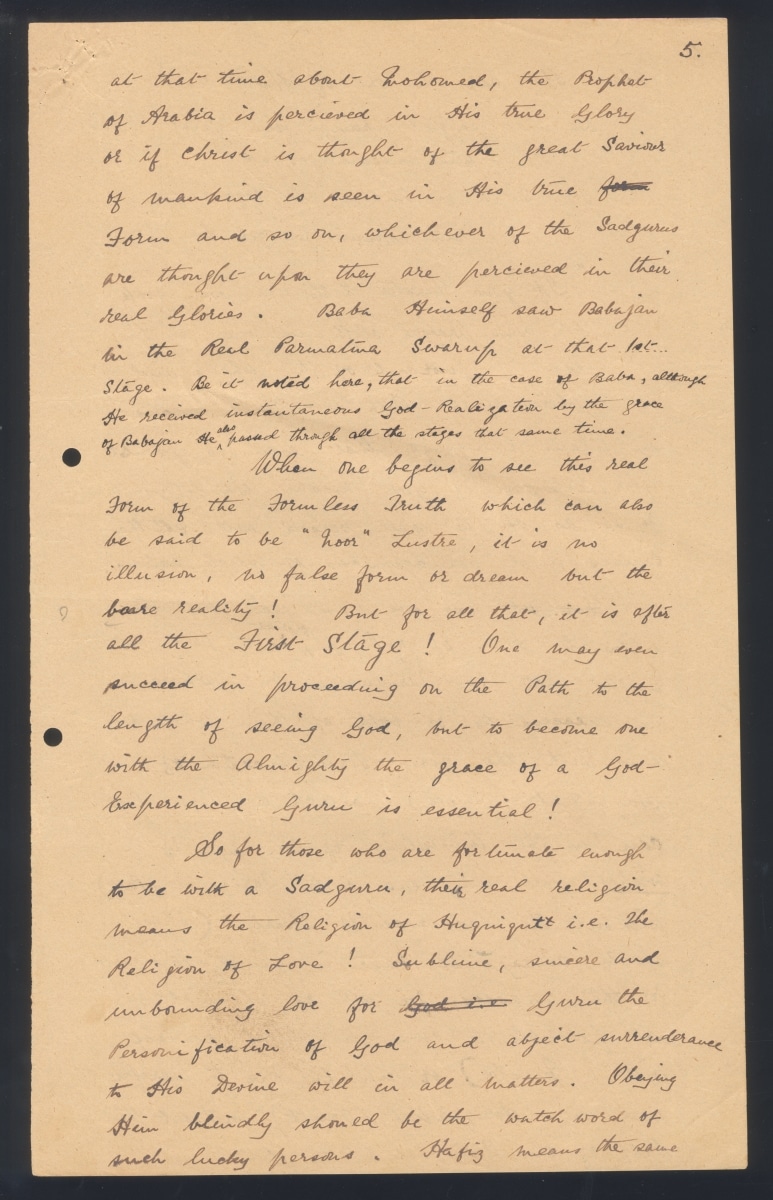 5.
at that time about Mohomed, the Prophet
of Arabia is percieved in His true Glory
or if Christ is thought of the great Saviour
of mankind is seen in His true form
Form and so on, whichever of the Sadgurus
are thought upon they are percieved in their
real Glories. Baba Himself saw Babajan
in the Real Parmatma Swarup at that 1st...
Stage. Be it noted here, that in the case of Baba, although
He received instantaneous God-Realization by the grace
of Babajan He also passed through all the stages that same time.
When one begins to see this real
Form of the Formless Truth which can also
be said to be "Noor" Lustre, it is no
illusion, no false form or dream but the
bare reality! But for all that, it is after
all the First Stage! One may even
succeed in proceeding on the Path to the
length of seeing God, but to become one
with the Almighty the grace of a God-
Experienced Guru is essential!
So for those who are fortunate enough
to be with a Sadguru, their real religion
means the Religion of Huqniqutt i.e. The
Religion of Love! Sublime, sincere and
unbounding love for God i.e. Guru the
Personification of God and abject surrenderance
to His Devine will in all matters. Obeying
Him blindly shoued be the watch word of
such lucky persons. Hafiz means the same